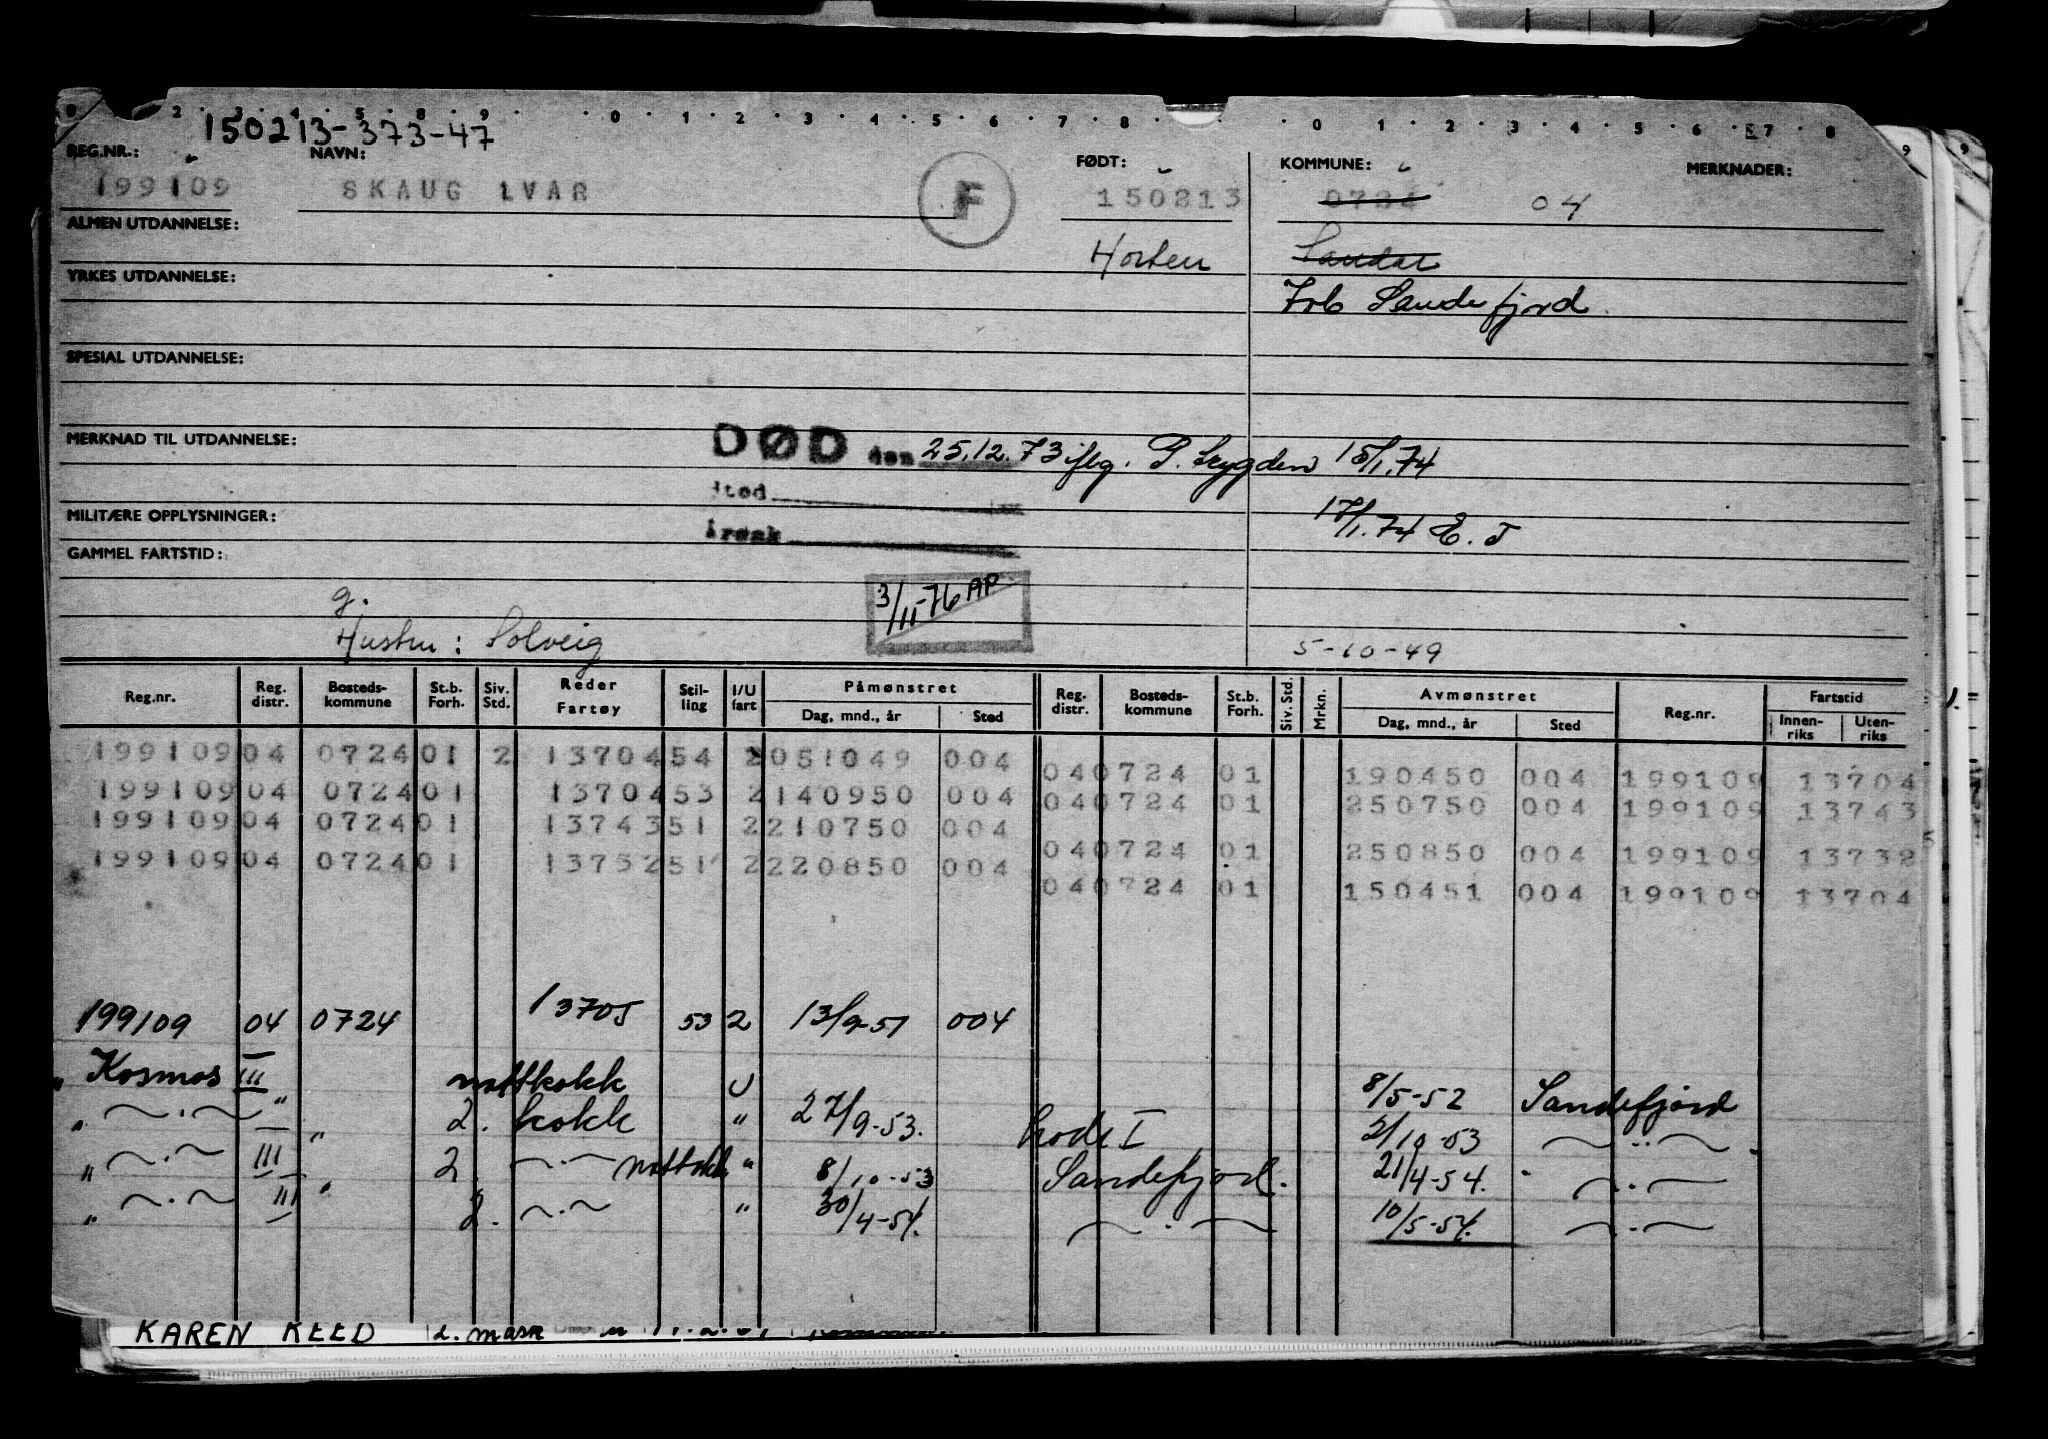 0 2 3 4 5 8 9 0 1 2 3 4 5 6 7 8 0 1 2 3 4 5 6 7 8 9
150213-373-47
REG.NR.: NAVN: FØDT: KOMMUNE: MERKNADER:
199109 SKAUG IVAR F 150213 0724 04
ALMEN UTDANNELSE: Horten Sandar
YRKES UTDANNELSE: Sandefjord
SPESIAL UTDANNELSE:
MERKNAD TIL UTDANNELSE: DØD den 25.12.73 iflg. P. trygden 15/1.74
sted
MILITÆRE OPPLYSNINGER: 17/1.74 E. J
årsak
GAMMEL FARTSTID:
g. 3/11-76 AP
Hustru: Solveig 5-10-49
Reg.nr. Reg. distr. Bosteds-kommune St.b. Forh. Siv. Std. Reder Fartøy Stil-ling I/U fart Påmønstret Dag, mnd., år Sted Reg. distr. Bosteds-kommune St.b. Forh. Siv. Std. Mrkn. Avmønstret Dag, mnd., år Sted Reg.nr. Fartstid Innen-riks Uten-riks
199109 04 0724 01 2 13704 54 2 051049 004
04 0724 01 190450 004 199109 13704
199109 04 0724 01 13704 53 2 140950 004
04 0724 01 250750 004 199109 13743
199109 04 0724 01 13743 51 2 210750 004
04 0724 01 250850 004 199109 13732
199109 04 0724 01 13732 51 2 220850 004
04 0724 01 150451 004 199109 13704
199109 04 0724 13705 53 2 13/9-51 004
" Kosmos III nattkokk U 8/5-52 Sandefjord
" " 2. kokk " 27/9-53. kode I 2/10-53
" III " 2. nattkokk " 8/10-53 Sandefjord. 21/4-54.
" III " 2. " 30/4-54. 10/5-54.
KAREN REED 2. mask